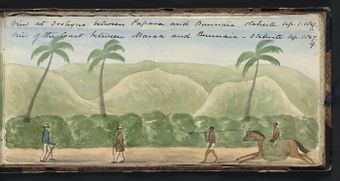 View at Toohqus between Papara and Bunnaia. Otaheite Sep. 1. 1849.
View of the Coast between Maraa and Bunnaia - Otaheite Sep. 1849.